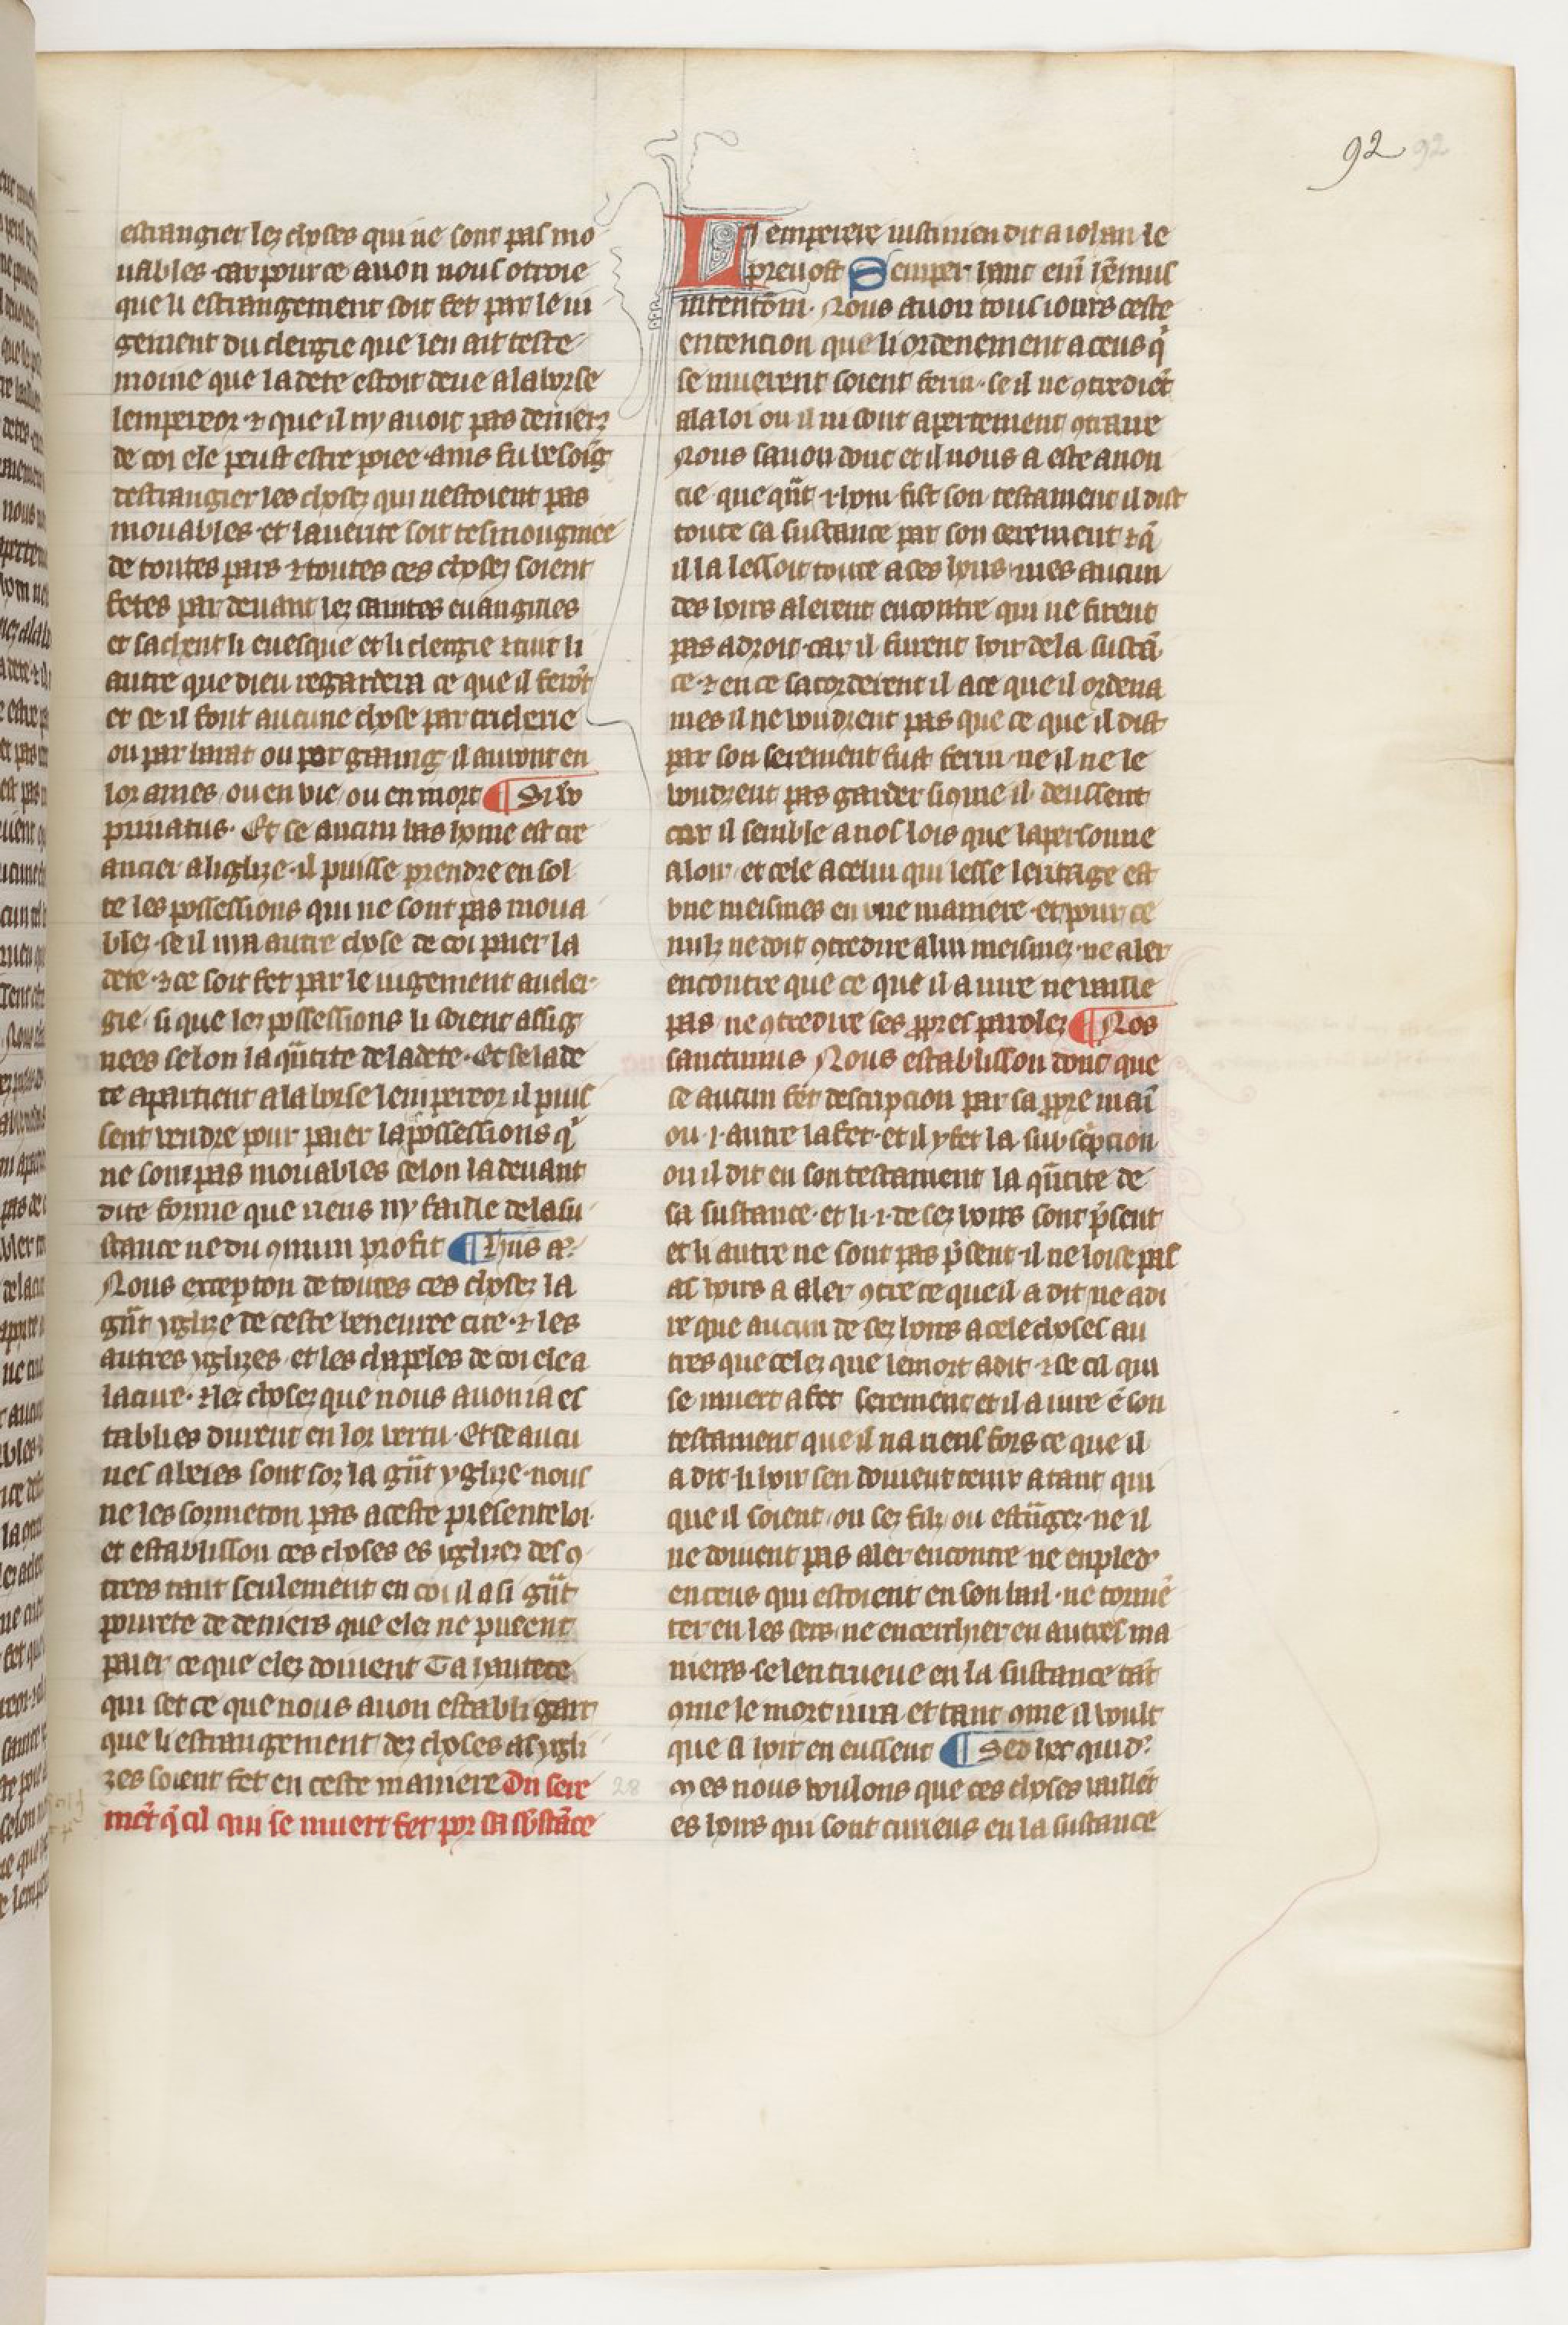 92 92
estrangier lez choses qui ne sont pas mo
uables. car pour ce auon nous otroie
que li estrangement soit fet par le iu
gement du clergie que len ait teste
moine que la dete estoit deue a la borse
lempereor. ⁊ que il ny auoit pas deniers
de coi ele peust estre poiee. ains fu besoīg
destrangier les chosez qui nestoient pas
mouables. et la uerite soit tesmougniee
de toutes pars. ⁊ toutes ces chosez soient
fetes par deuant lez saintes euangiles
et sachent li euesque et li clergie ⁊ tuit li
autre que dieu regardera ce que il ferōt
et ce il font aucune chose par tricherie
ou par barat ou par graing il auront en
lor ames, ou en vie, ou en mort ¶ Si uo
priuatus. Et se aucun bas home est cre
ancier a liglize. il puisse prendre en sol
te les possessions qui ne sont pas moua
blez. se il nia autre chose de coi paier la
dete. ⁊ ce soit fet par le iugement au cler
gie. si que lez possessions li soient assig
nees selon la q̄ntite de la dete. Et se la de
te apartient a la borse lempereor il puis
sent uendre pour paier la possessions q̄
ne sont pas mouables selon la deuant
dite forme que riens ny faille de la su
stance ne du 9mun profit ¶ Hiis a⁊.
Nous excepton de toutes ces chosez la
gr̄nt yglize de ceste beneuree cite. ⁊ les
autres yglizes. et les chapeles de coi ele a
la cure. ⁊ lez chosez que nous auon ia es
tablies durent en lor uertu. Et se aucu
nes abeies sont soz la gr̄nt yglize. nous
ne les sozmeton pas a ceste presente loi.
et establisson ces choses es yglizez des 9
trees tant seulement en coi il a si gr̄nt
pourete de deniers que elez ne pueent
paier ce que elez doiuent Ta hautece
qui set ce que nous auon establi gart
que li estrangement dez choses as ygli
zes soient fet en ceste maniere Du sere
mēt q̄ cil qui se muert fet por sa sustāce
Lemperere iustinien dit a iohan le
preuost Semper hanc eni hēmus
intentōm. Nous auon tous iours ceste
entencion que li ordenement a ceus q̄
se muerent soient ferm. se il ne 9tredient
a la loi ou il ni sont apertement 9traire
Nous sauon donc et il nous a este anon
cie. que qn̄t .i. hom fist son testament il dist
toute sa sustance par son serement ⁊ q̄
il la lessoit toute a ces hoirs. mes aucun
des hoirs alerent encontre qui ne firent
pas a droit. car il furent hoir de la sustā
ce. ⁊ en ce sacorderent il a ce que il ordena
mes il ne uoudrent pas que ce que il dist
par son serement fust ferm. ne il ne le
uoudrent pas garder si 9me il deussent
car il semble a nos lois que la personne
a loir. et cele a celui qui lesse leritage est
vne meismes en vne maniere. et pour ce
nulz ne doit 9tredire a lui meismez. ne aler
encontre que ce que il a iure ne uaille
pas. ne 9tredire ses ppres parolez ¶ Nos
sanctimus Nous establisson donc que
se aucun fet descripcion par sa ppre main
ou .i. autre la fet. et il y fet la subscipcion
ou il dit en son testament la qn̄tite de
sa sustance. et li .i. de sez hoirs sont p̄sent
et li autre ne sont pas p̄sent. il ne loise pas
as hoirs a aler 9tre ce que il a dit, ne a di
re que aucun de sez hoirs a cele choses au
tres que celez que le mort a dit. ⁊ se cil qui
se muert a fet serement et il a iure ē son
testament que il na riens fors ce que il
a dit. li hoir sen doiuent tenir a tant qui
que il soient, ou sez filz, ou estrangez. ne il
ne doiuent pas aler encontre ne enpled'
en ceus qui estoient en son bail. ne tormē
ter en les sers, ne encerchier en autres ma
nieres. se len trueue en la sustance tāt
9me le mort iura. et tant 9me il uoult
que si hoir en eussent ¶ Sed hec quid.
Mes nous uoulons que ces choses uaillēt
es hoirs qui sont curieus en la sustance
28